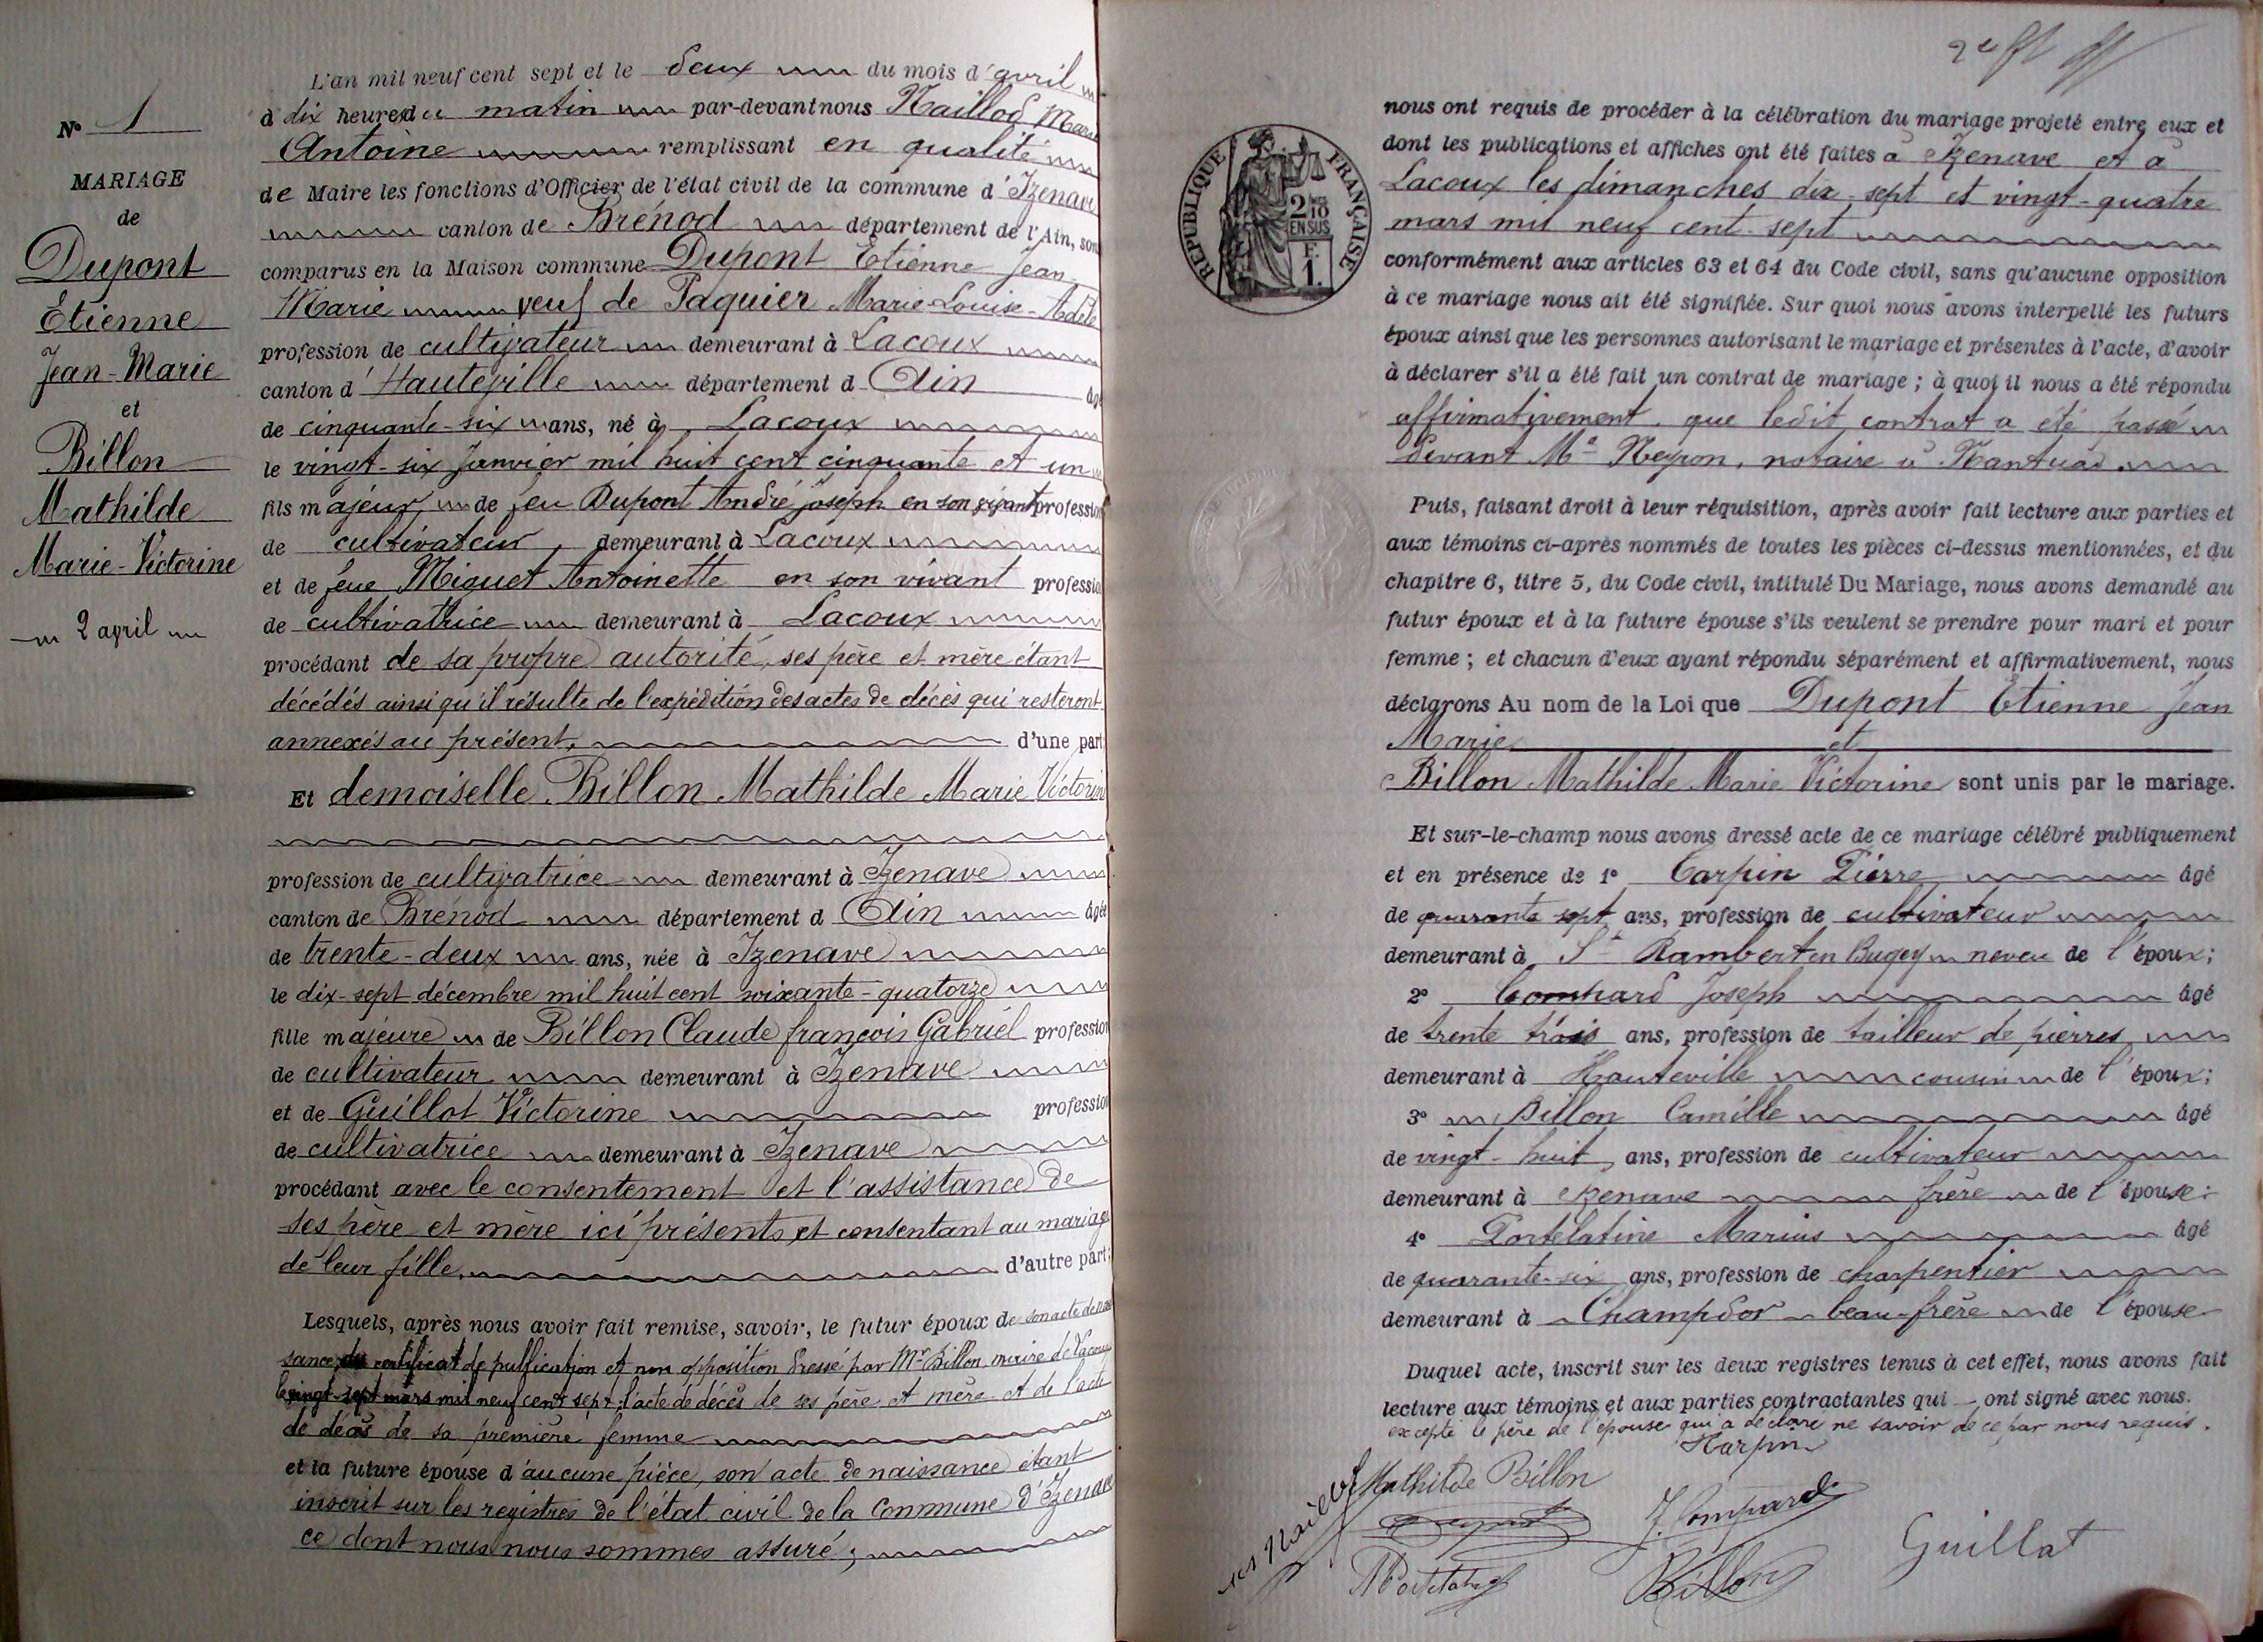 N° 1
MARIAGE
de
Dupont
Etienne
Jean-Marie
et
Billon
Mathilde
Marie-Victorine
2 avril
L'an mil neuf cent sept et le deux du mois d'avril
à dix heures du matin par-devant nous Naillod Marie
Antoine remplissant en qualité
de Maire les fonctions d'Officier de l'état civil de la commune d'Izenave
canton de Brénod département de l'Ain, sont
comparus en la Maison commune Dupont Etienne Jean-
Marie veuf de Paquier Marie-Louise-Adèle
profession de cultivateur demeurant à Lacoux
canton d'Hauteville département d Ain âgé
de cinquante-six ans, né à Lacoux
le vingt-six Janvier mil huit cent cinquante et un
fils majeur de feu Dupont André Joseph en son vivant profession
de cultivateur, demeurant à Lacoux
et de feue Miguet Antoinette en son vivant profession
de cultivatrice demeurant à Lacoux
procédant de sa propre autorité, ses père et mère étant
décédés ainsi qu'il résulte de l'expédition des actes de décès qui resteront
annexés au présent, d'une part
Et demoiselle Billon Mathilde Marie Victorine
profession de cultivatrice demeurant à Izenave
canton de Brénod département d Ain âgée
de trente-deux ans, née à Izenave
le dix-sept décembre mil huit cent soixante-quatorze
fille majeure de Billon Claude françois Gabriel profession
de cultivateur demeurant à Izenave
et de Guillot Victorine profession
de cultivatrice demeurant à Izenave
procédant avec le consentement et l'assistance de
ses père et mère ici présents et consentant au mariage
de leur fille, d'autre part;
Lesquels, après nous avoir fait remise, savoir, le futur époux de son acte de nais
sance, du certificat de publication et non opposition dressé par Mr Billon maire de Lacoux
le vingt-sept mars mil neuf cent sept; l'acte de décès de ses père et mère et de l'acte
de décès de sa première femme
et la future épouse d'aucune pièce, son acte de naissance étant
inscrit sur les registres de l'état civil de la commune d'Izenave
ce dont nous nous sommes assuré;
RÉPUBLIQUE FRANÇAISE
2/10
EN SUS
F.
1.
nous ont requis de procéder à la célébration du mariage projeté entre eux et
dont les publications et affiches ont été faites à Izenave et à
Lacoux les dimanches dix-sept et vingt-quatre
mars mil neuf cent-sept
conformément aux articles 63 et 64 du Code civil, sans qu'aucune opposition
à ce mariage nous ait été signifiée. Sur quoi nous avons interpellé les futurs
époux ainsi que les personnes autorisant le mariage et présentes à l'acte, d'avoir
à déclarer s'il a été fait un contrat de mariage; à quoi il nous a été répondu
affirmativement, que ledit contrat a été passé
devant Me Neyron, notaire à Nantua
Puis, faisant droit à leur réquisition, après avoir fait lecture aux parties et
aux témoins ci-après nommés de toutes les pièces ci-dessus mentionnées, et du
chapitre 6, titre 5, du Code civil, intitulé Du Mariage, nous avons demandé au
futur époux et à la future épouse s'ils veulent se prendre pour mari et pour
femme; et chacun d'eux ayant répondu séparément et affirmativement, nous
déclarons Au nom de la Loi que Dupont Etienne Jean
Marie et
Billon Mathilde Marie Victorine sont unis par le mariage.
Et sur-le-champ nous avons dressé acte de ce mariage célébré publiquement
et en présence de 1° Carpin Pierre âgé
de quarante sept ans, profession de cultivateur
demeurant à St Rambert en Bugey neveu de l'époux;
2° Comhard Joseph âgé
de trente trois ans, profession de tailleur de pierres
demeurant à Hauteville cousin de l'époux;
3° Billon Camille âgé
de vingt-huit ans, profession de cultivateur
demeurant à Izenave frère de l'épouse;
4° Portelatine Marius âgé
de quarante-six ans, profession de charpentier
demeurant à Champdor beau-frère de l'épouse
Duquel acte, inscrit sur les deux registres tenus à cet effet, nous avons fait
lecture aux témoins et aux parties contractantes qui ont signé avec nous.
excepté le père de l'épouse qui a déclaré ne savoir de ce par nous requis.
Mathilde Billon
J. Compard
Billon
Guillat